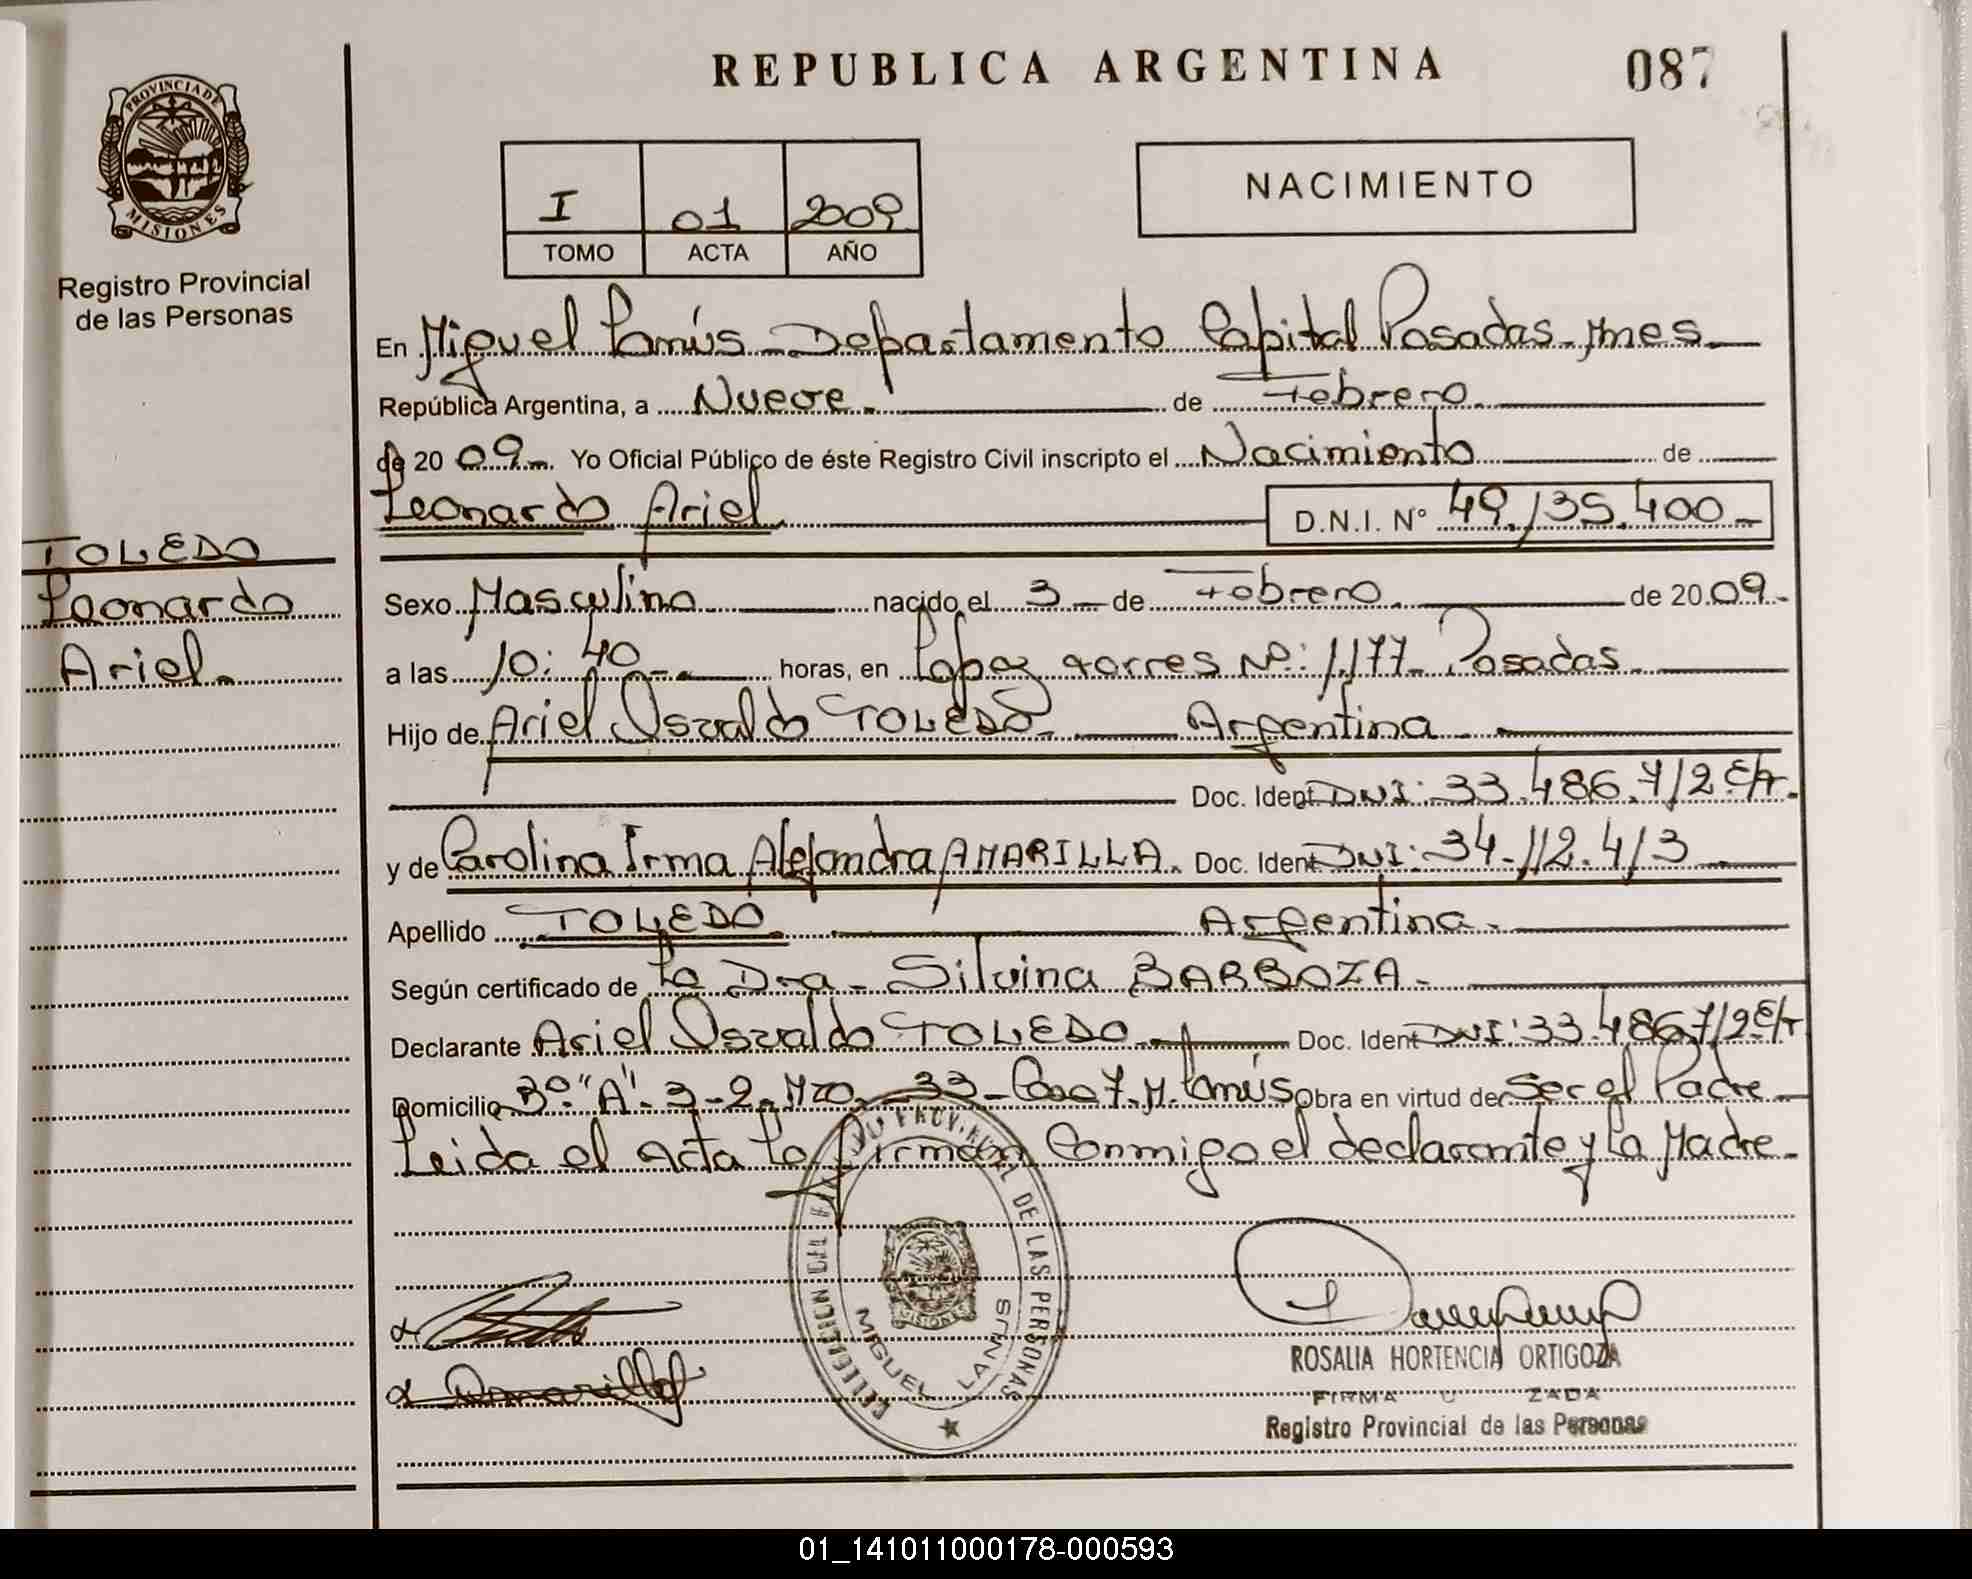 REPUBLICA ARGENTINA
087
PROVINCIA DE
MISIONES
Registro Provincial
de las Personas
I 01 2009
TOMO ACTA AÑO
NACIMIENTO
En Miguel Lanús - Departamento Capital Posadas - Mnes
República Argentina, a Nueve. de Febrero
de 20 09 Yo Oficial Público de éste Registro Civil inscripto el Nacimiento de
Leonardo Ariel D.N.I. N° 49.135.400
TOLEDO
Leonardo
Ariel
Sexo Masculino nacido el 3 de Febrero de 20 09
a las 10:40 horas, en Lopez torres Nº: 1.177 Posadas
Hijo de Ariel Osvaldo TOLEDO. Argentina
Doc. Ident DNI: 33.486.712 E/tr.
y de Carolina Irma Alejandra AMARILLA. Doc. Ident DNI: 34.112.413
Apellido TOLEDO Argentina
Según certificado de La Dra. Silvina BARBOZA
Declarante Ariel Osvaldo TOLEDO Doc. Ident DNI: 33.486712 E/tr
Domicilio Bº "A" 3-2 Mzo 33 - Casa 7. M. Lanús Obra en virtud de Ser el Padre
Leida el acta La firman Conmigo el declarante y La Madre
DE LAS PERSONAS
MIGUEL LANUS
MISIONES
Amarilla
ROSALIA HORTENCIA ORTIGOZA
FIRMA
Registro Provincial de las Personas
01_141011000178-000593